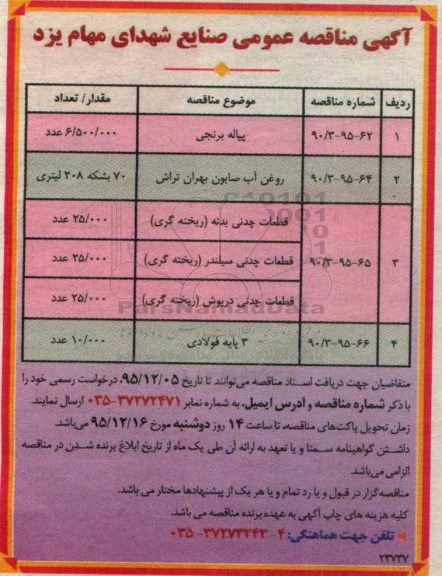 آگهی مناقصه عمومی صنایع شهدای مهام یزد
ردیف شماره مناقصه موضوع مناقصه مقدار/ تعداد
۱ ۹۰/۳-۹۵-۶۲ پیاله برنجی ۶/۵۰۰/۰۰۰ عدد
۲ ۹۰/۳-۹۵-۶۴ روغن آب صابون بهران تراش ۷۰ بشکه ۲۰۸ لیتری
قطعات چدنی بدنه (ریخته گری) ۲۵/۰۰۰ عدد
۳ ۹۰/۳-۹۵-۶۵ قطعات چدنی سیلندر (ریخته گری) ۲۵/۰۰۰ عدد
قطعات چدنی درپوش (ریخته گری) ۲۵/۰۰۰ عدد
۴ ۹۰/۳-۹۵-۶۶ ۳ پایه فولادی ۱۰/۰۰۰ عدد
ParsNamadData
متقاضیان جهت دریافت اسناد مناقصه می‌توانند تا تاریخ ۹۵/۱۲/۰۵، درخواست رسمی خود را
با ذکر شماره مناقصه و آدرس ایمیل، به شماره نمابر ۳۷۲۷۲۴۷۱-۰۳۵ ارسال نمایند.
زمان تحویل پاکت‌های مناقصه، تا ساعت ۱۴ روز دوشنبه مورخ ۹۵/۱۲/۱۶ می‌باشد.
داشتن گواهینامه سمتا و یا تعهد به ارائه آن طی یک ماه از تاریخ ابلاغ برنده شدن در مناقصه
الزامی می‌باشد.
مناقصه‌گزار در قبول و یا رد تمام و یا هر یک از پیشنهادها مختار می باشد.
کلیه هزینه های چاپ آگهی به عهده برنده مناقصه می باشد.
تلفن جهت هماهنگی: ۴-۳۷۲۷۳۲۴۳-۰۳۵
۲۳۷۳۷